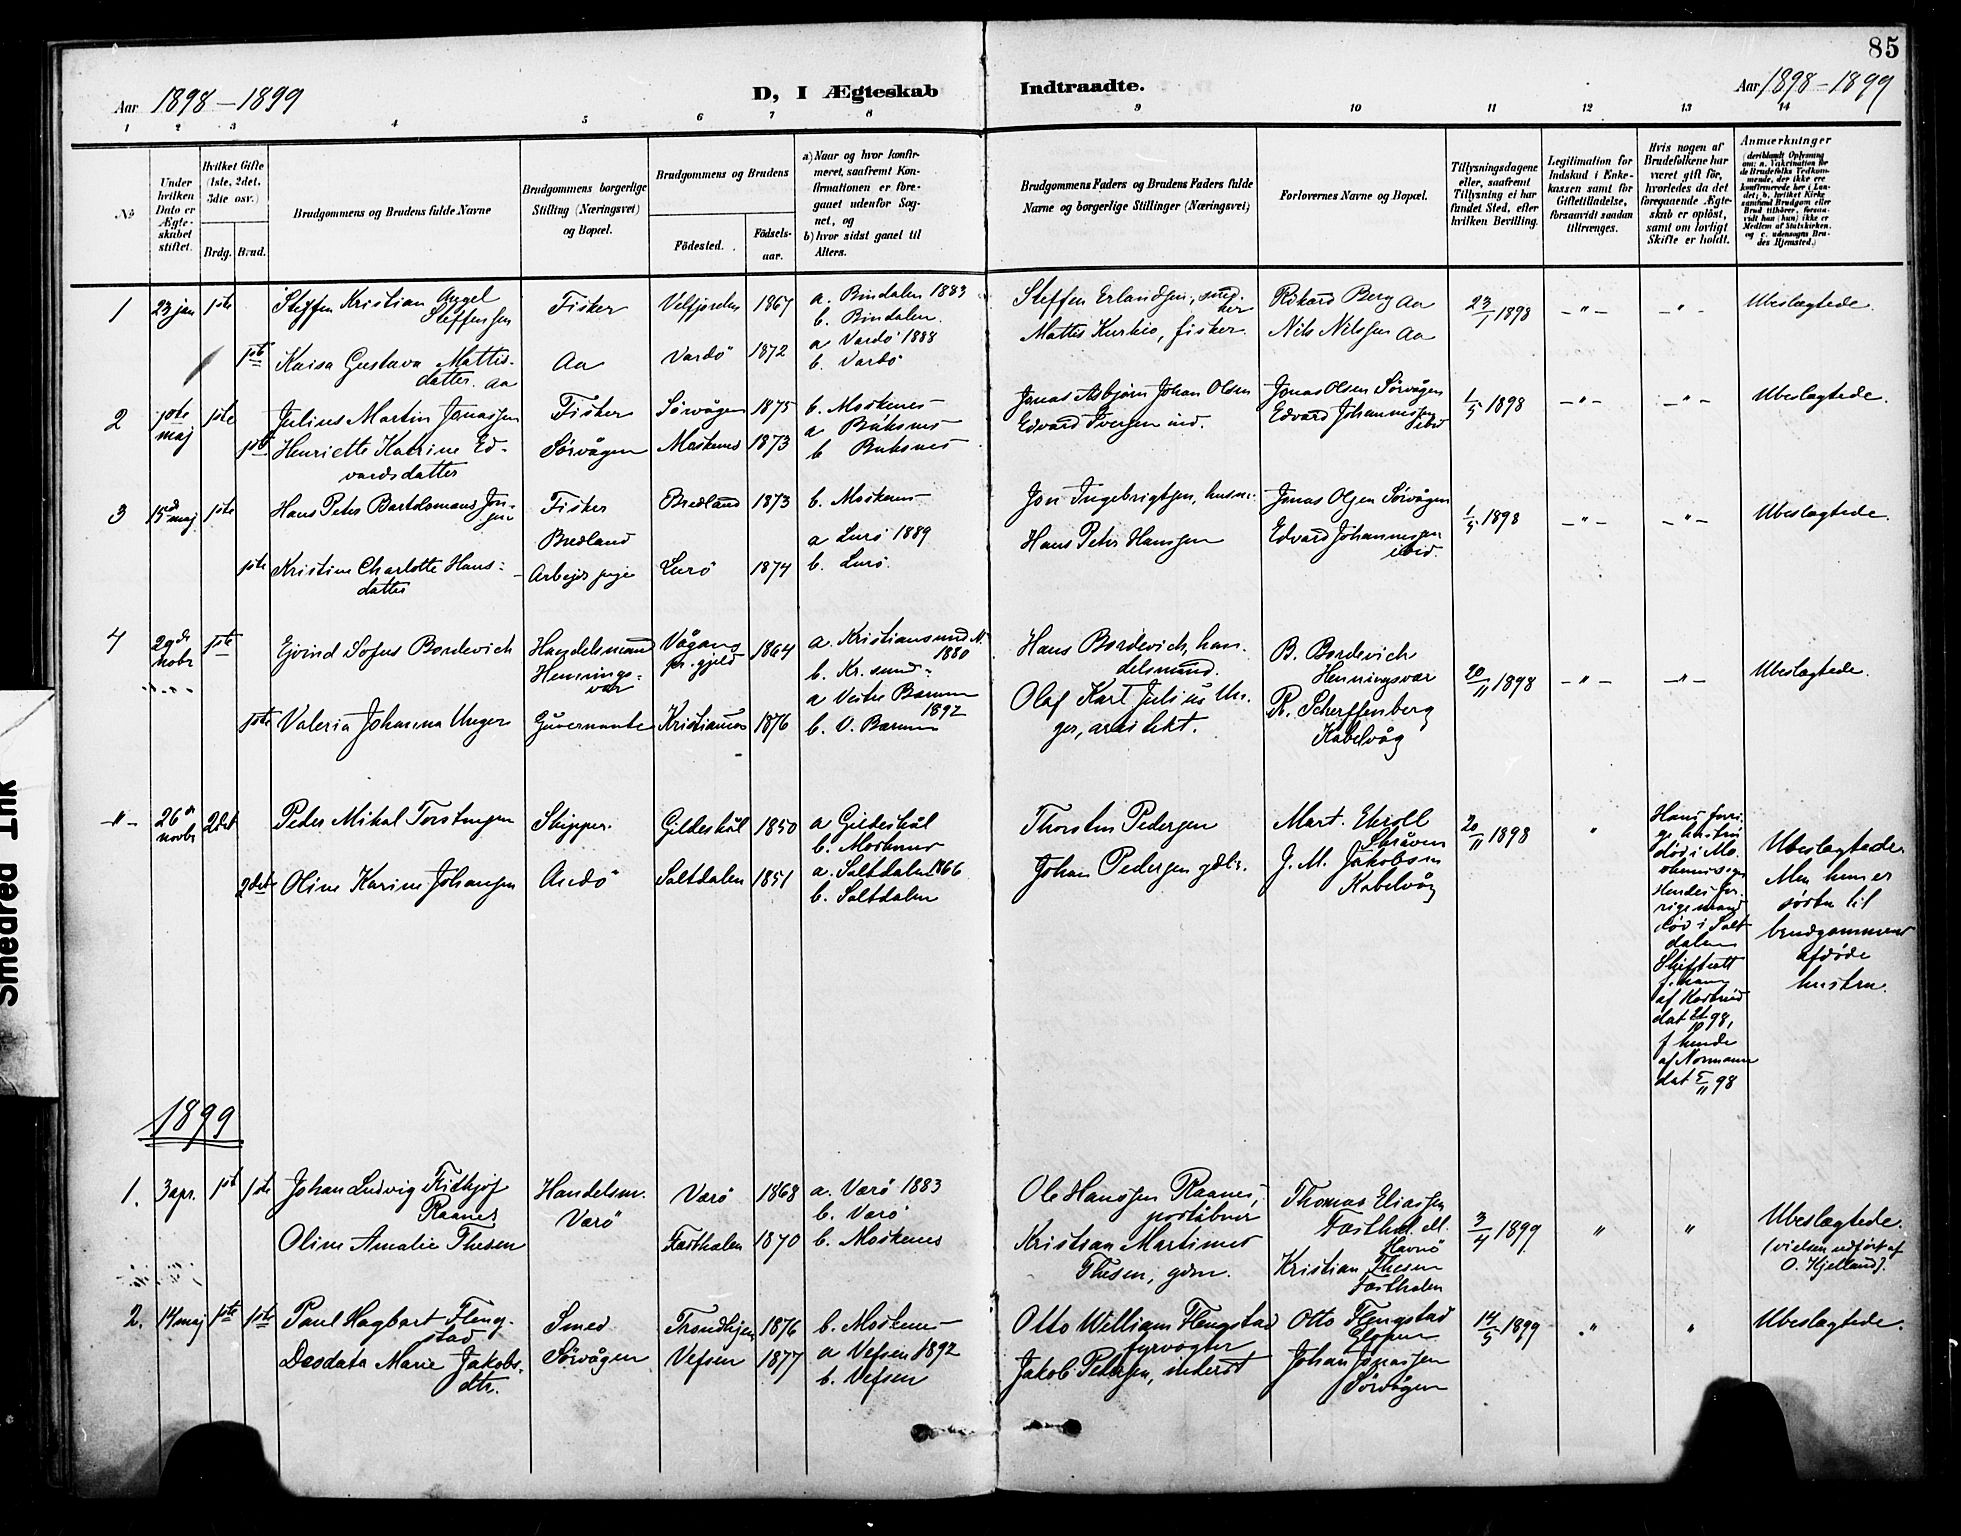 85
Aar 1898-1899
D, I Ægteskab Indtraadte.
Aar 1898-1899
1 2 3 4 5 6 7 8 9 10 11 12 13 14
No
Under hvilken Dato er Ægteskabet stiftet.
Hvilket Gifte (1ste, 2det, 3die osv.)
Brdg. Brud.
Brudgommens og Brudens fulde Navne
Brudgommens borgerlige Stilling (Næringsvei) og Bopæl.
Brudgommens og Brudens
Fødested. Fødselsaar.
a) Naar og hvor konfirmeret, saafremt Konfirmationen er foregaaet udenfor Sognet, og
b) hvor sidst gaaet til Alters.
Brudgommens Faders og Brudens Faders fulde Navne og borgerlige Stillinger (Næringsvei)
Forlovernes Navne og Bopæl.
Tillysningsdagene eller, saafremt Tillysning ei har fundet Sted, efter hvilken Bevilling.
Legitimation for Indskud i Enkekassen samt for Giftetilladelse, forsaavidt saadan tiltrænges.
Hvis nogen af Brudefolkene har været gift før, hvorledes da det foregaaende Ægteskab er opløst, samt om lovligt Skifte er holdt.
Anmærkninger
(deriblandt Oplysning om: a. Vakcination for de Brudefolks Vedkommende, der ikke ere konfirmerede her i Landet, b. hvilket Kirkesamfund Brudgom eller Brud tilhører, forsaavidt han (hun) ikke er Medlem af Statskirken, og c. udensogns Brudes Hjemsted.)
1 23 jan 1ste Steffen Kristian Angel Steffensen Fisker Velfjorden 1867 a. Bindalen 1883
b. Bindalen
Steffen Erlandsen, Rikard Berg Aa 23/1 1898 -"- -"- Ubeslægtede.
1ste Kaisa Gustava Mattisdatter. Aa Aa Vardö 1872 a Vardö 1888
b. Vardö
Mattis Kurkio, fisker Nils Nilssen Aa
2 1ste maj 1ste Julius Martin Jonassen Fisker Sörvågen 1875 b. Moskenes
Jonas Asbjörn Johan Olsen Jonas Olsen Sörvågen 1/5 1898 -"- -"- Ubeslægtede.
1ste Henriette Katrine Edvardsdatter Sörvågen Moskenes 1873 a Buksnes
b Buksnes
Edvard Iversen ind. Edvard Johannessen ibid
3 15d maj 1ste Hans Peter Bartolomæus Jonsen Fisker Bredland 1873 b. Moskenes
Bredland
Jon Ingebrigtsen, husm. Jonas Olsen Sörvågen 1/5 1898 -"- -"- Ubeslægtede.
1ste Kristine Charlotte Hansdatter Arbejdspige Lurö 1874 a Lurö 1889
b. Lurö.
Hans Peter Hanssen Edvard Johannessen ibid.
4 29de novbr 1ste Ejvind Sofus Bordevich Handelsmand Henningsvær Vågans pr.gjeld 1864 a. Kristiansund N. 1880
b. Kr.sund
Hans Bordevich, handelsmand. B. Bordevich Henningsvær 20/11 1898 -"- -"- Ubeslægtede.
1ste Valeria Johanna Unger Guvernante Kristiania 1876 a Vestre Barum 1892
b. V. Barum
Olaf Karl Julius Unger, arkitekt. R. Scherffenberg Kabelvåg
-"- 26d novbr 2det Peder Mikal Torstensen Skipper. Gildeskål 1850 a Gildeskål
b. Moskenes
Thorsten Pedersen Mart. Ekroll Skråven 20/11 1898 "
2det Oline Karine Johansen Andö Saltdalen 1851 a. Saltdalen 1866
b. Saltdalen
Johan Pedersen gdbr. J. M. Jakobsen Kabelvåg
Hans forrige hustru död i
Hendes forrige mand
död i Saltdalen
Skifteatt
f. ham
dat 98,
f hende
af Normann
dat 5/11 98
Ubeslægtede.
Men hun er
söster til
brudgommens
afdöde
hustru.
1899
1. 3 apr. 1st 1ste Johan Ludvig Fridtjof Raanes Handelsm. Værö Værö 1868 a. Værö 1883
b. Værö
Ole Hanssen Raanes, poståbner Thomas Eliassen 3/4 1899 " " Ubeslægtede.
Oline Amalie Thesen 1870 b. Moskenes
Kristian Martinus Thesen, gdm. Kristian Thesen
(vielsen udfört af O. Kjelland).
2. 14 maj 1ste 1ste Paul Hagbart Flengstad Smed Trondhjem 1876 b. Moskenes
Otto William Flengstad fyrvogter Otto Flengstad Glopen 14/5 1899 " " Ubeslægtede.
Desdata Marie Jakobsdtr. Sörvågen Vefsen 1877 a Vefsen 1892
b. Vefsen
Jakob Petersen, inderst Johan Jonassen Sörvågen
Smedred Ink